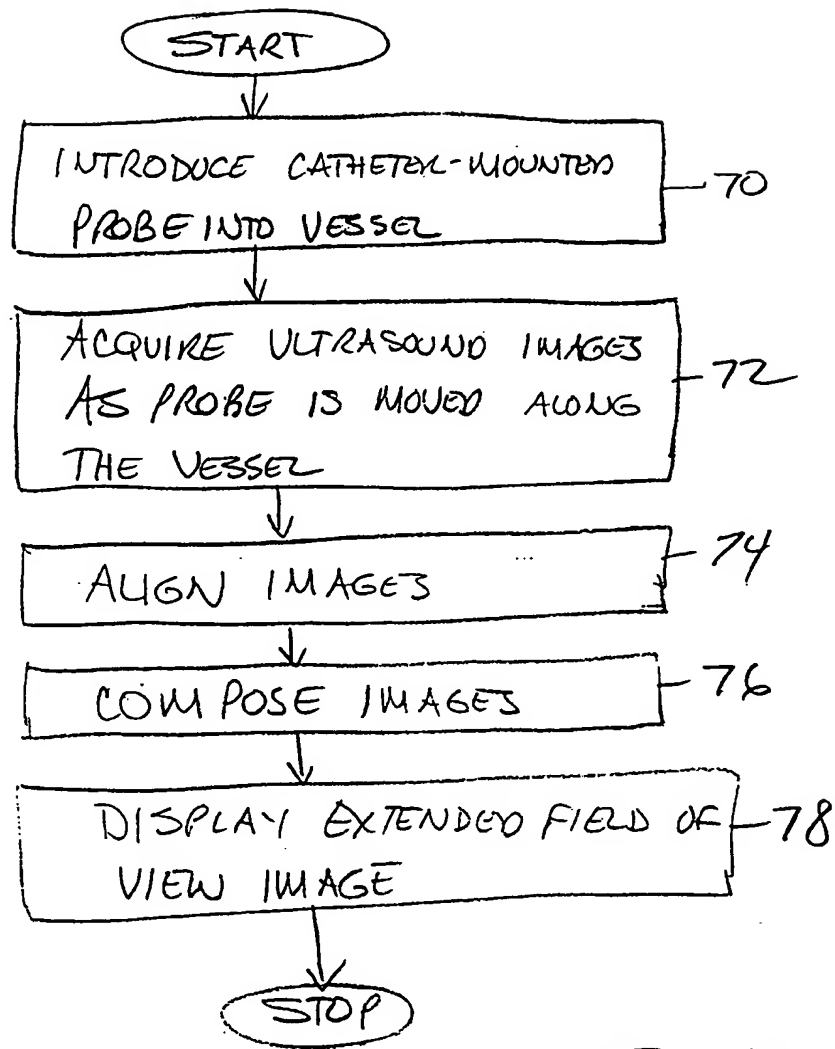 START
INTRODUCE CATHETER-MOUNTED
PROBE INTO VESSEL
70
ACQUIRE ULTRASOUND IMAGES
AS PROBE IS MOVED ALONG
THE VESSEL
72
ALIGN IMAGES
74
COMPOSE IMAGES
76
DISPLAY EXTENDED FIELD OF
VIEW IMAGE
78
STOP